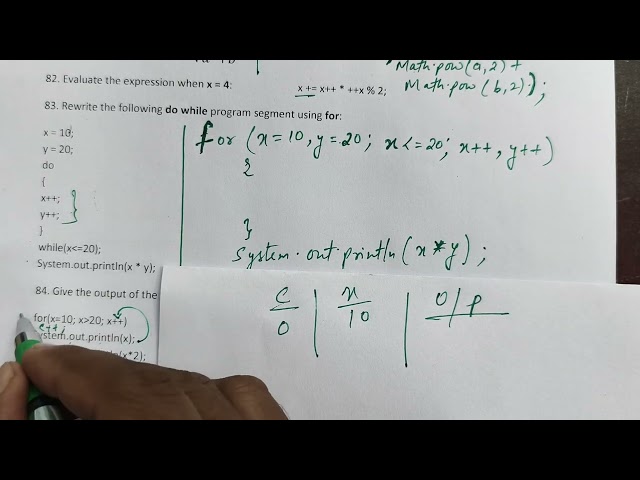 Math.pow(a,2) +
82. Evaluate the expression when x = 4: x += x++ * ++x % 2; Math.pow (b,2);
83. Rewrite the following do while program segment using for:
x = 10;
y = 20;
do
{
x++;
y++;
}
while(x<=20);
System.out.println(x * y);
for (x=10, y=20; x<=20; x++, y++)
{
}
System.out.println(x*y);
84. Give the output of the
for(x=10; x>20; x++)
c++;
System.out.println(x);
(x*2);
c | x | O/P
0 | 10 |